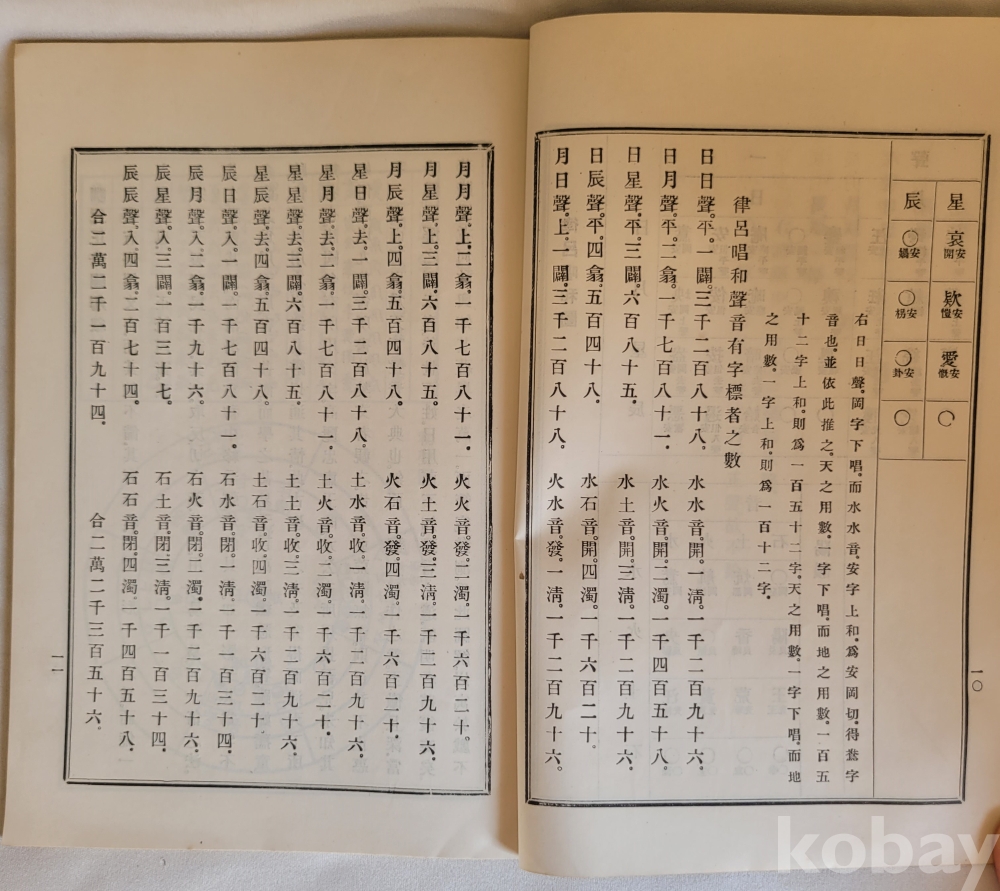 星 哀安開 欸安愷 愛安慨 〇
辰 〇安蝸 〇安枴 〇安卦 〇
右日日聲。岡字下唱。而水水音。安字上和。爲安岡切。得字
音也。並依此推之。天之用數。一字下唱。而地之用數。一百五
十二字上和。則爲一百五十二字。天之用數。一字下唱。而地
之用數。一字上和。則爲一百十二字。
律呂唱和聲音有字標者之數
日日聲。平。一闢。三千二百八十八。 水水音。開。一淸。一千二百九十六。
日月聲。平。二翕。一千七百八十一。 水火音。開。二濁。一千四百五十八。
日星聲。平。三闢。六百八十五。 水土音。開。三淸。一千二百九十六。
日辰聲。平。四翕。五百四十八。 水石音。開。四濁。一千六百二十。
月日聲。上。一闢。三千二百八十八。 火水音。發。一淸。一千二百九十六。
一〇
月月聲。上。二翕。一千七百八十一。 火火音。發。二濁。一千六百二十。
月星聲。上。三闢。六百八十五。 火土音。發。三淸。一千二百九十六。
月辰聲。上。四翕。五百四十八。 火石音。發。四濁。一千六百二十。
星日聲。去。一闢。三千二百八十八。 土水音。收。一淸。一千二百九十六。
星月聲。去。二翕。一千七百八十一。 土火音。收。二濁。一千六百二十。
星星聲。去。三闢。六百八十五。 土土音。收。三淸。一千二百九十六。
星辰聲。去。四翕。五百四十八。 土石音。收。四濁。一千六百二十。
辰日聲。入。一闢。一千七百八十一。 石水音。閉。一淸。一千一百三十四。
辰月聲。入。二翕。一千九十六。 石火音。閉。二濁。一千二百九十六。
辰星聲。入。三闢。一百三十七。 石土音。閉。三淸。一千一百三十四。
辰辰聲。入。四翕。二百七十四。 石石音。閉。四濁。一千四百五十八。
合二萬二千一百九十四。 合二萬二千三百五十六。
一一
kobay